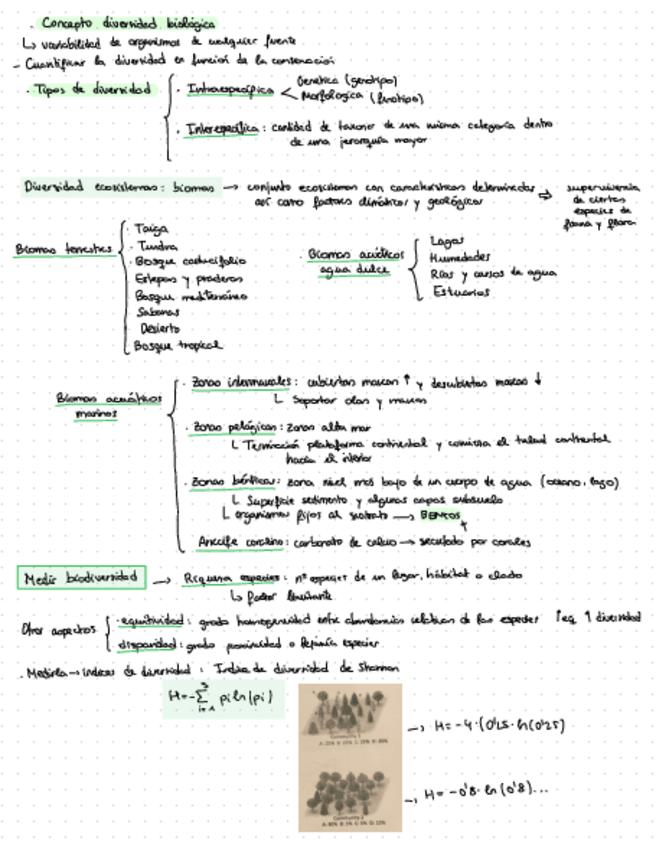 . Concepto diversidad biológica
↳ variabilidad de organismos de cualquier fuente
- Cuantificar la diversidad en función de la conservación
. Tipos de diversidad
. Intraespecífica < Genética (genotipo)
Morfológica (fenotipo)
. Interespecífica: cantidad de taxones de una misma categoría dentro
de una jerarquía mayor
Diversidad ecosistemas: biomas → conjunto ecosistemas con características determinadas
así como factores climáticos y geológicos
⇒ supervivencia
de ciertas
especies de
fauna y flora
Biomas terrestres
. Taiga
. Tundra
. Bosque caducifolio
Estepas y praderas
Bosque mediterráneo
Sabanas
Desierto
Bosque tropical
. Biomas acuáticos
agua dulce
Lagos
Humedades
Ríos y cursos de agua
Estuarios
Biomas acuáticos
marinos
. Zonas intermareales: cubiertas mareas ↑ y descubiertas mareas ↓
↳ Soportar olas y mareas
. Zonas pelágicas: zonas alta mar
↳ Terminación plataforma continental y comienza el talud continental
hacia el interior
. Zonas bénticas: zona nivel más bajo de un cuerpo de agua (océano, lago)
↳ Superficie sedimento y algunas capas subsuelo
↳ organismos fijos al sustrato → BENTOS
Arrecife coralino: carbonato de calcio → secretado por corales
Medir biodiversidad → Riqueza especies: nº especies de un lugar, hábitat o clado
↳ factor limitante
Otros aspectos
. equitividad: grado homogeneidad entre abundancias relativas de las especies ↑eq ↑ diversidad
disparidad: grado parecido o lejanía especies
. Medirla → índices de diversidad: Índice de diversidad de Shannon
H=-∑ pi ln (pi)
Community 1
A: 25% B: 25% C: 25% D: 25%
→ H= -4·(0'25·ln(0'25)
Community 2
A: 80% B: 5% C: 5% D: 10%
→ H= -0'8·ln(0'8)...